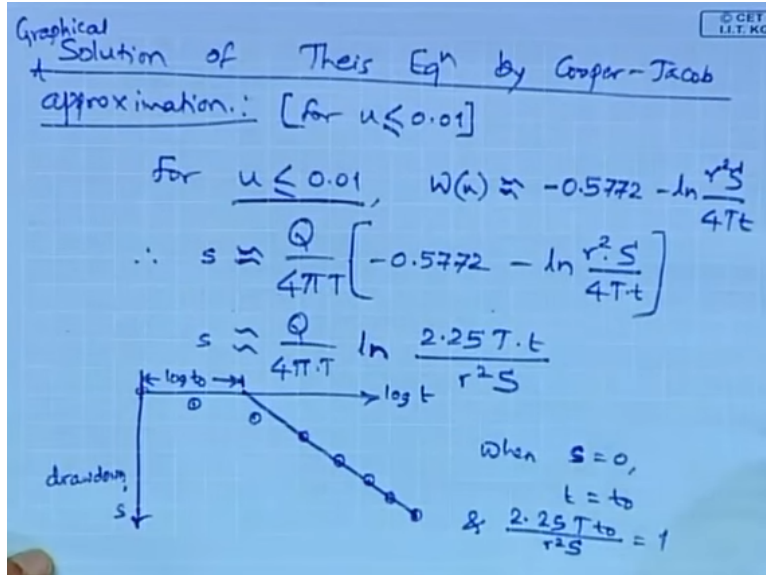 © CET
I.I.T. KG
Graphical
Solution of Theis Eqn by Cooper-Jacob
approximation.: [for u ≤ 0.01]
For u ≤ 0.01, W(u) ≈ -0.5772 - ln r²S/4Tt
∴ s ≈ Q/4πT [-0.5772 - ln r².S/4T.t]
s ≈ Q/4π.T ln 2.25 T.t/r²S
log t₀
log t
drawdown,
s
When s = 0,
t = t₀
& 2.25 T t₀/r²S = 1